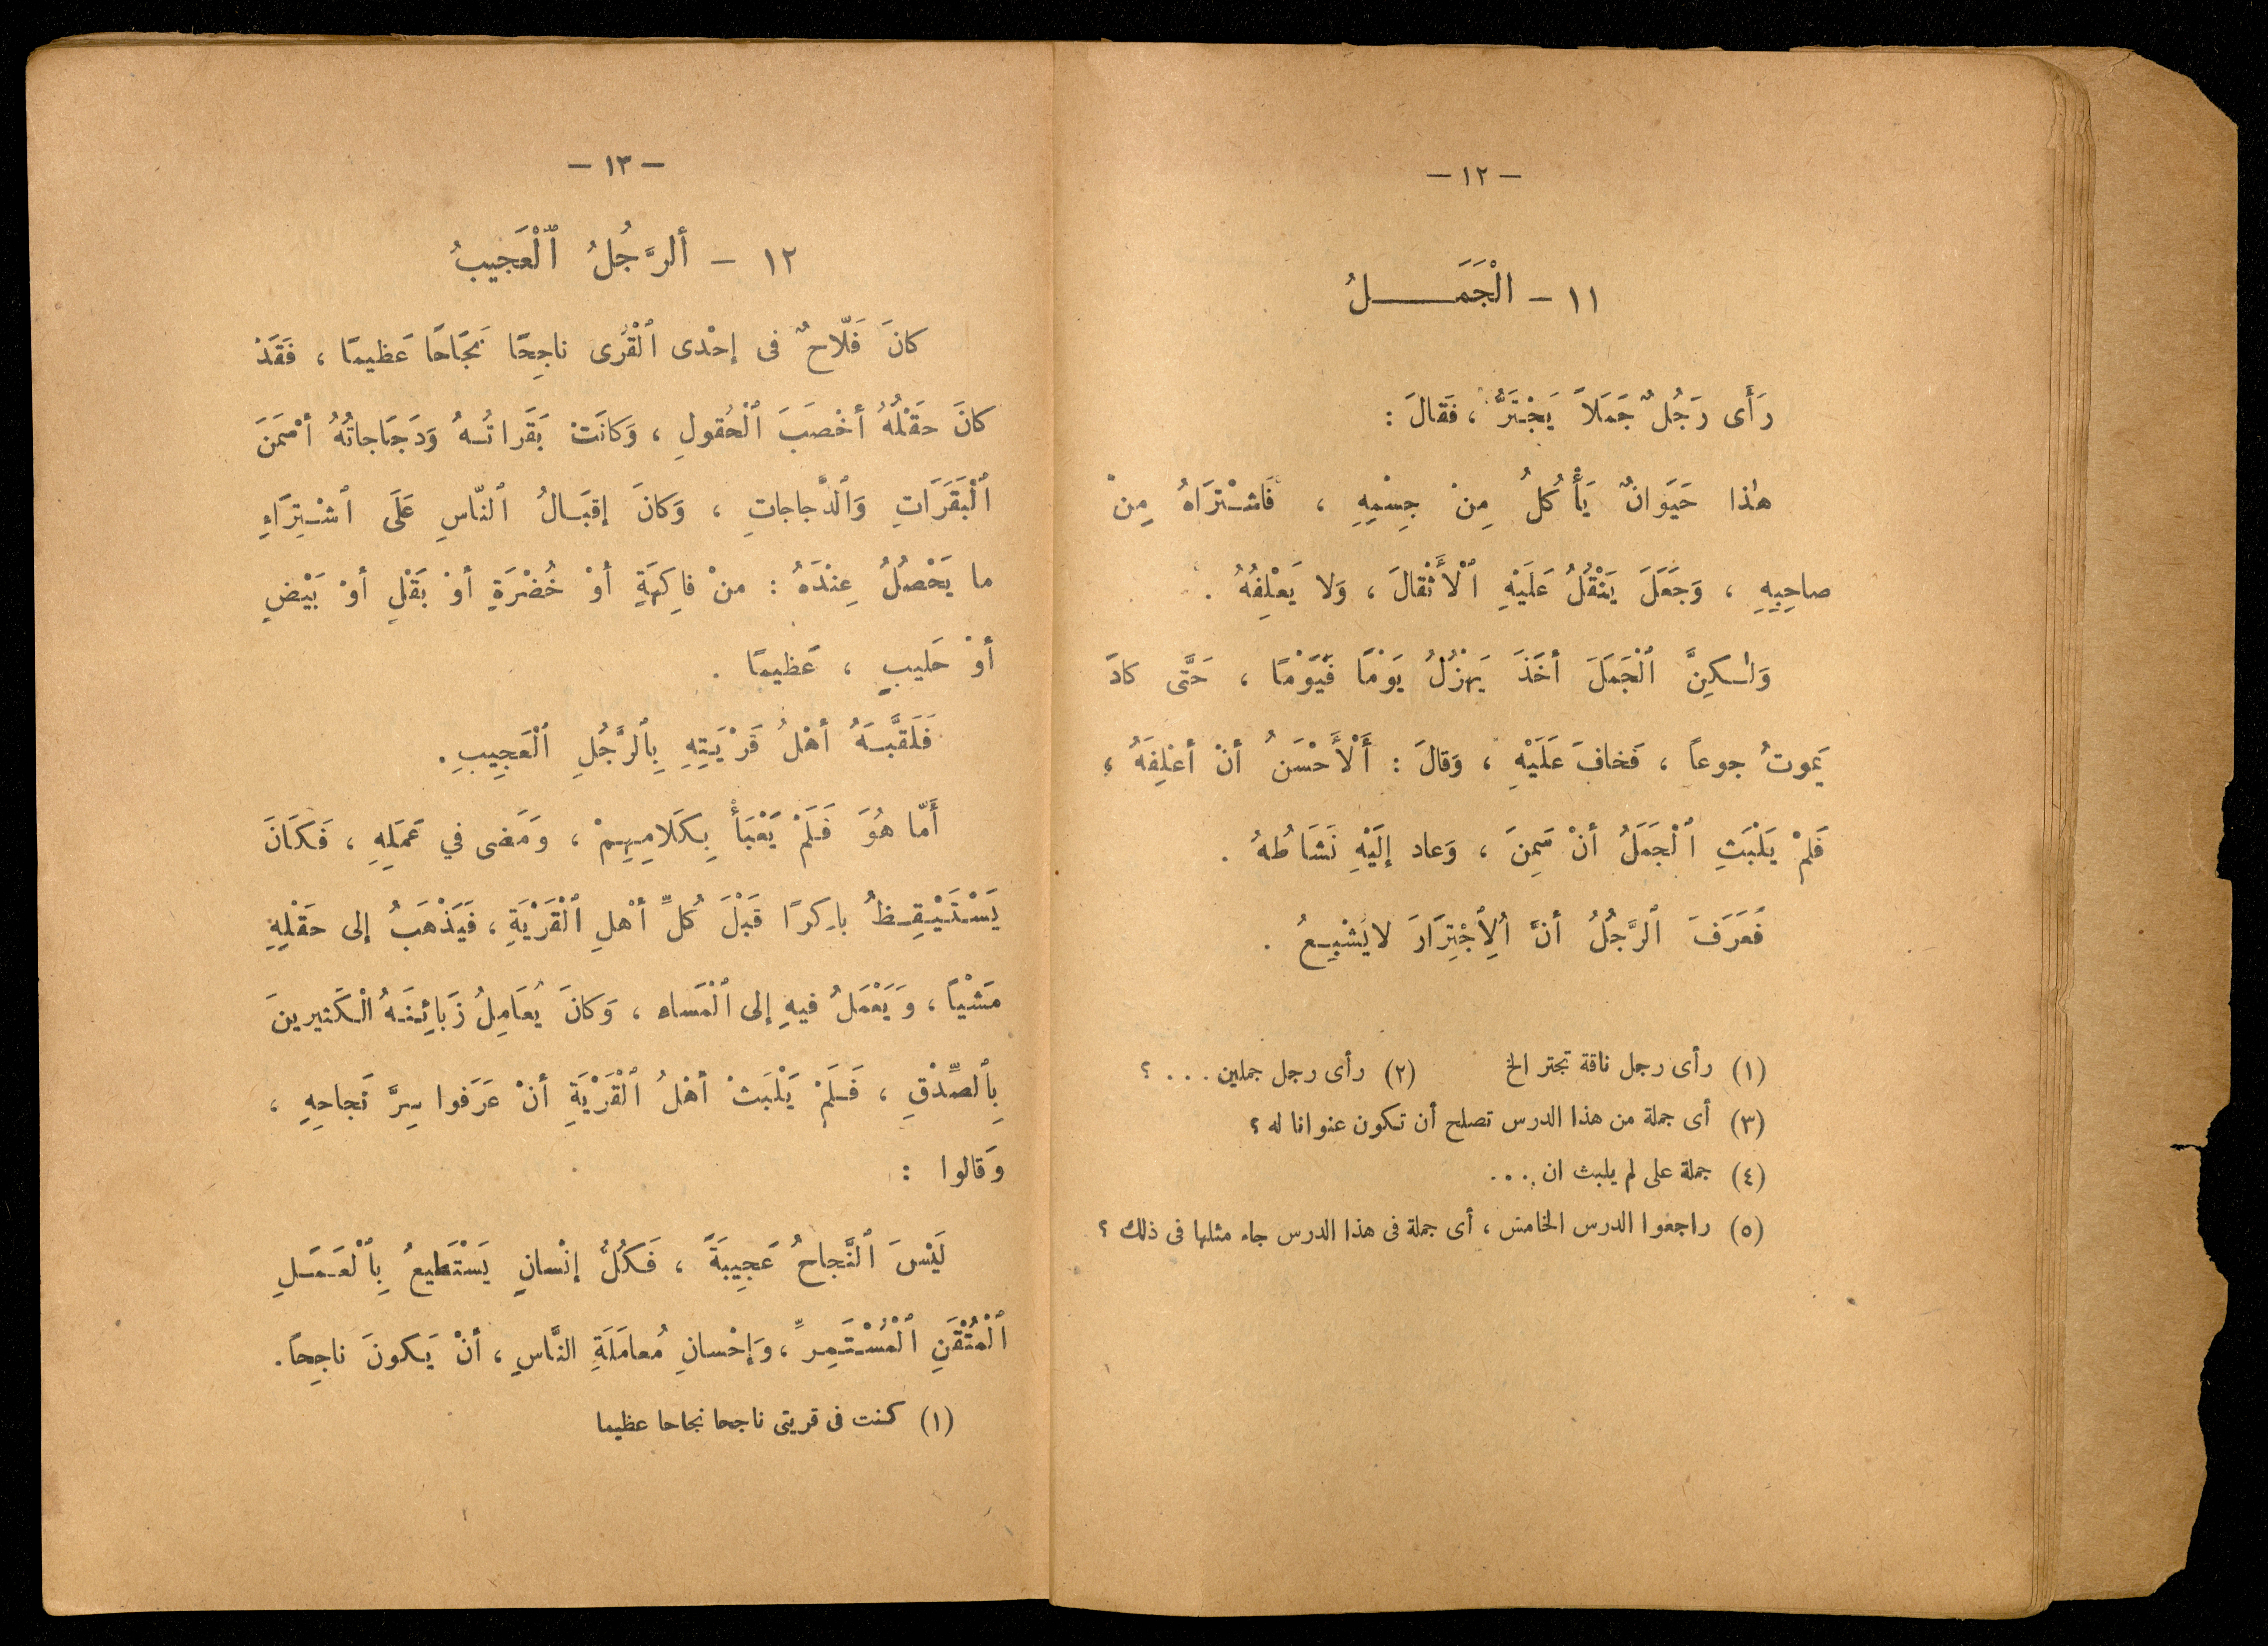 — ١٢ —
١١ — الْجَمَـــــلُ
رَأَى رَجُلٌ جَمَلاً يَجْتَرُّ ، فَقالَ :
هٰذا حَيَوانٌ يَأْكُلُ مِنْ جِسْمِهِ ، فَاشْتَرَاهُ مِنْ
صاحِبِهِ ، وَجَعَلَ يَنْقُلُ عَلَيْهِ ٱلْأَثْقالَ ، وَلا يَعْلِفُهُ .
وَلٰـكِنَّ ٱلْجَمَلَ أخَذَ يَهْزُلُ يَوْمًا فَيَوْمًا ، حَتَّى كادَ
يَموتُ جوعاً ، فَخافَ عَلَيْهِ ، وَقالَ : أَلْأَحْسَنُ أنْ أعْلِفَهُ ،
فَلَمْ يَلْبَثِ ٱلْجَمَلُ أنْ سَمِنَ ، وَعاد إلَيْهِ نَشَاطُهُ .
فَعَرَفَ ٱلرَّجُلُ أنَّ ٱلِاجْتِرَارَ لايُشْبِـعُ .
(١) رأى رجل ناقة تجتر الخ (٢) رأى رجل جملين . . . ؟
(٣) أى جملة من هذا الدرس تصلح أن تكون عنوانا له ؟
(٤) جملة على لم يلبث ان . . .
(٥) راجعوا الدرس الخامس ، أى جملة فى هذا الدرس جاء مثلها فى ذلك ؟
— ١٣ —
١٢ — ألرَّجُلُ ٱلْعَجيبُ
كانَ فَلّاحٌ فى إحْدى ٱلْقُرى ناجِحًا نَجَاحًا عَظيمًا ، فَقَدْ
كانَ حقْلُهُ أخْصَبَ ٱلْحُقولِ ، وَكانَتْ بَقَراتُـهُ وَدَجَاجاتُهُ أسْمَنَ
ٱلْبَقَرَاتِ وَٱلدَّجاجاتِ ، وَكانَ إقبَـالُ ٱلنّاسِ عَلَى ٱشْـتِرَاءِ
ما يَحْصُلُ عِنْدَهُ : منْ فاكِهَةٍ أوْ خُضْرَةٍ أوْ بَقْلٍ أوْ بَيْضٍ
أوْ حَليبٍ ، عَظيمًا .
فَلَقَّبَـهُ أهْلُ قَرْيَتِهِ بِٱلرَّجُلِ ٱلْعَجِيبِ .
أَمّا هُوَ فَلَمْ يَعْبَأْ بِكَلامِهِمْ ، وَمَضى في عَمَلِهِ ، فَكَانَ
يَسْتَيْقِـظُ باكِرًا قَبْلَ كُلِّ أهْلِ ٱلْقَرْيَةِ ، فَيَذْهَبُ إلى حَقْلِهِ
مَشْيًا ، وَيَعْمَلُ فيهِ إلى ٱلْمَساء ، وَكانَ يُعَامِلُ زَبَائِنَـهُ الْكَثيرينَ
بِٱلصِّدْقِ ، فَـلَمْ يَلْبَثْ أهْلُ ٱلْقَرْيَةِ أنْ عَرَفوا سِرَّ نَجاحِهِ ،
وَقالوا :
لَيْسَ ٱلنَّجاحُ عَجِيبَةً ، فَكُلُّ إنْسانٍ يَسْتَطيعُ بِٱلْعَـمَـلِ
ٱلْمُتْقَنِ ٱلْمُسْتَمِرِّ ، وَإحْسانِ مُعامَلَةِ النَّاسِ ، أنْ يَـكونَ ناجِحاً .
(١) كنت فى قريتى ناجحا نجاحا عظيما